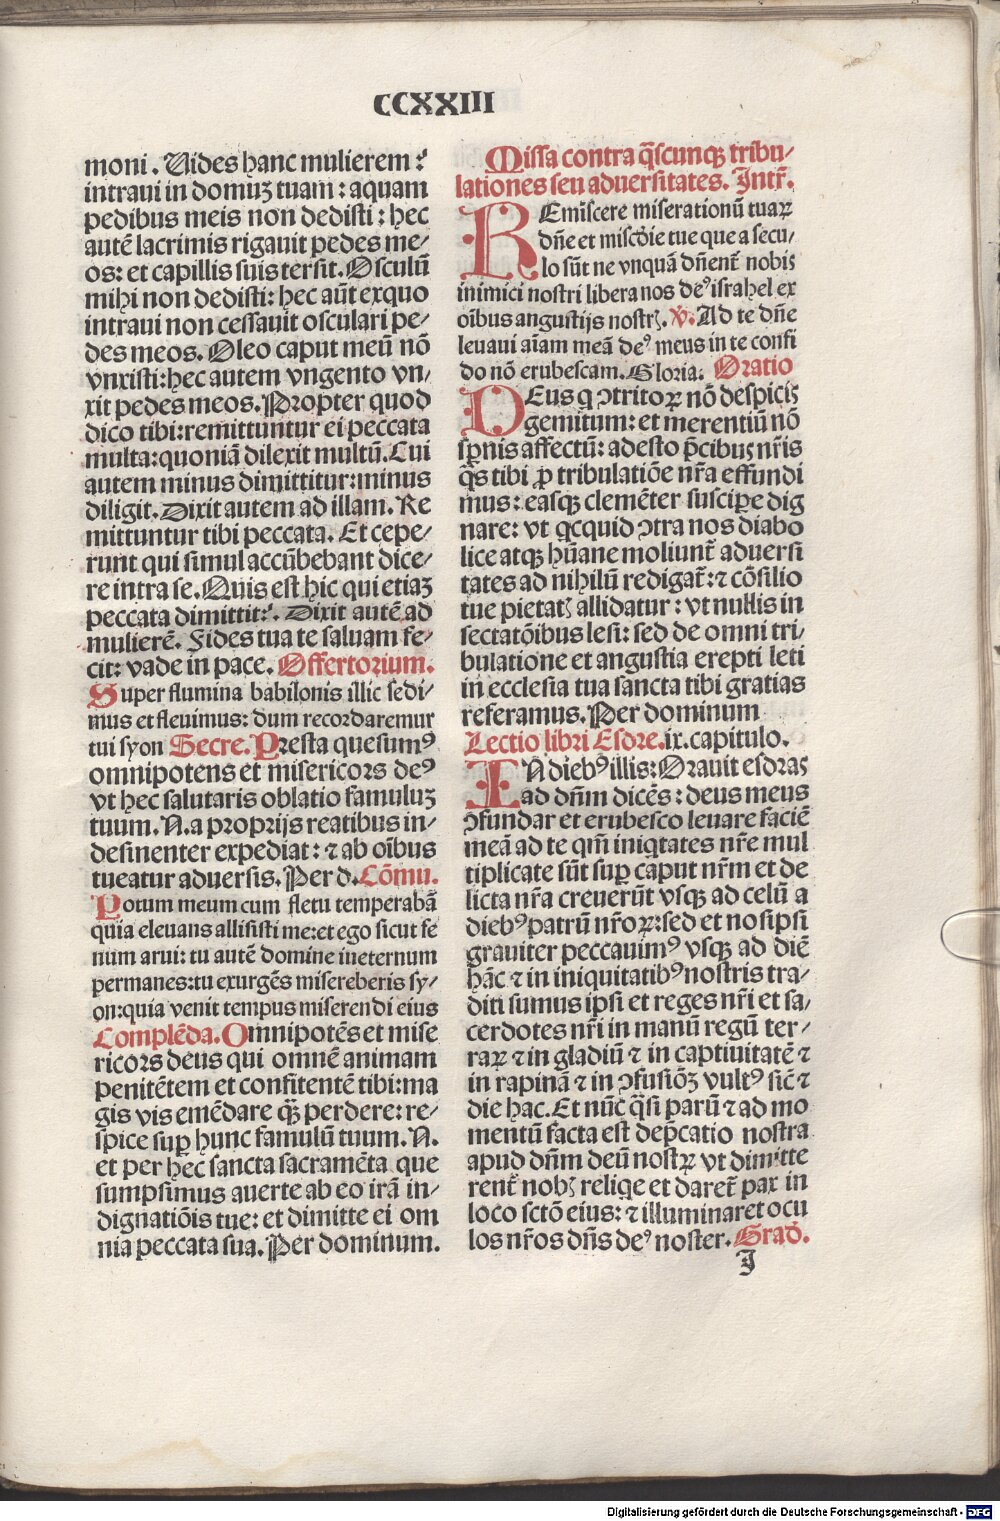 CCXXIII
moni. Uides hanc mulierem:
intraui in domuꝫ tuam: aquam
pedibus meis non dedisti: hec
autē lacrimis rigauit pedes me/
os: et capillis suis tersit. Osculū
mihi non dedisti: hec aūt exquo
intraui non cessauit osculari pe/
des meos. Oleo caput meū nō
vnxisti: hec autem vngento vn/
xit pedes meos. Propter quod
dico tibi: remittuntur ei peccata
multa: quoniā dilexit multū. Cui
autem minus dimittitur: minus
diligit. Dixit autem ad illam. Re
mittuntur tibi peccata. Et cepe/
runt qui simul accūbebant dice/
re intra se. Quis est hic qui etiaꝫ
peccata dimittit: Dixit autē ad
mulierē. Fides tua te saluam fe/
cit: vade in pace. Offertorium.
Super flumina babilonis illic sedi/
mus et fleuimus: dum recordaremur
tui syon Secre. Presta quesumꝰ
omnipotens et misericors deꝰ
vt hec salutaris oblatio famuluꝫ
tuum. N. a proprijs reatibus in/
desinenter expediat: ⁊ ab oībus
tueatur aduersis. Per d. Cōmu.
Potum meum cum fletu temperabā
quia eleuans allisisti me: et ego sicut fe
num arui: tu autē domine ineternum
permanes: tu exurgēs misereberis sy/
on: quia venit tempus miserendi eius
Complēda. Omnipotēs et mise
ricors deus qui omnē animam
penitētem et confitentē tibi: ma
gis vis emēdare qꝫ̄ perdere: re/
spice suꝑ hunc famulū tuum. N.
et per hec sancta sacramēta que
sumpsimus auerte ab eo irā in/
dignatiōis tue: et dimitte ei om
nia peccata sua. Per dominum.
Missa contra q̄scunqꝫ tribu/
lationes seu aduersitates. Intr̄.
REmiscere miserationū tuaꝝ
dn̄e et misc̄die tue que a secu/
lo sūt ne vnquā dn̄ent̄ nobis
inimici nostri libera nos deꝰ israhel ex
oībus angustijs nostrꝭ. v̄. Ad te dn̄e
leuaui aīam meā deꝰ meus in te confi
do nō erubescam. Gloria. Oratio
DEus q ↄtritoꝝ nō despicis
gemitum: et merentiū nō
sꝑnis affectū: adesto p̄cibus nr̄is
q̄s tibi ꝓ tribulatiōe nr̄a effundi
mus: easqꝫ clemēter suscipe dig
nare: vt qcquid ↄtra nos diabo
lice atqꝫ hūane moliunt̄ aduersi
tates ad nihilū redigat̄: ⁊ cōsilio
tue pietatꝭ allidatur: vt nullis in
sectatōibus lesi: sed de omni tri/
bulatione et angustia erepti leti
in ecclesia tua sancta tibi gratias
referamus. Per dominum
Lectio libri Esdre. ix. capitulo.
IN diebꝰ illis: Orauit esdras
ad dn̄m dicēs: deus meus
ↄfundar et erubesco leuare faciē
meā ad te qm̄ iniqtates nr̄e mul
tiplicate sūt suꝑ caput nr̄m et de
licta nr̄a creuerūt vsqꝫ ad celū a
diebꝰ patrū nr̄oꝝ: sed et nosipsi
grauiter peccauimꝰ vsqꝫ ad diē
hāc ⁊ in iniquitatibꝰ nostris tra/
diti sumus ipsi et reges nr̄i et sa/
cerdotes nr̄i in manū regū ter/
raꝝ ⁊ in gladiū ⁊ in captiuitatē ⁊
in rapinā ⁊ in ↄfusiōꝫ vultꝰ sic̄ ⁊
die hac. Et nūc q̄si parū ⁊ ad mo
mentū facta est dep̄catio nostra
apud dn̄m deū nostꝝ vt dimitte
rent̄ nobꝭ reliqe et daret̄ pax in
loco sctō eius: ⁊ illuminaret ocu
los nr̄os dn̄s deꝰ noster. Grad̄.
J
Digitalisierung gefördert durch die Deutsche Forschungsgemeinschaft - DFG